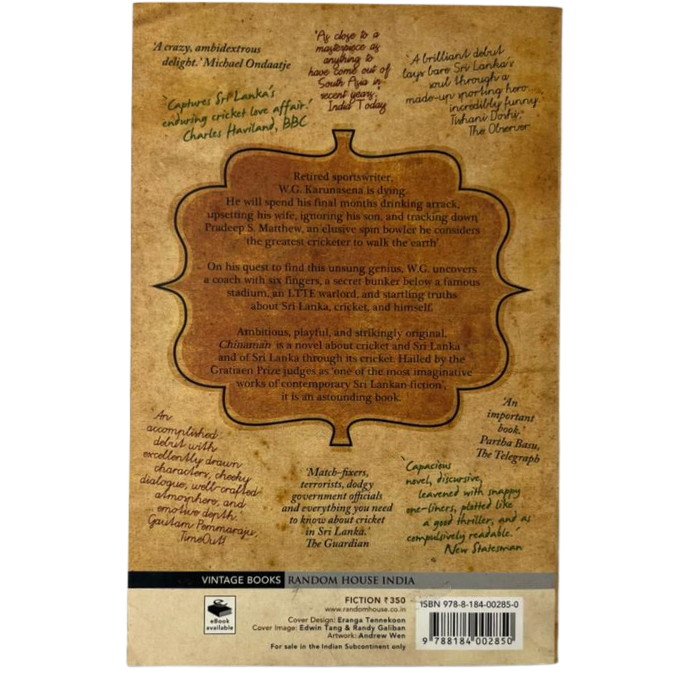 'A crazy, ambidextrous
delight.' Michael Ondaatje
'As close to a
masterpiece as
anything to
have come out of
South Asia in
recent years.'
India Today
'A brilliant debut
lays bare Sri Lanka's
soul through a
made-up sporting hero...
incredibly funny.'
Tishani Doshi,
The Observer
'Captures Sri Lanka's
enduring cricket love affair.'
Charles Haviland, BBC
Retired sportswriter,
W.G. Karunasena is dying.
He will spend his final months drinking arrack,
upsetting his wife, ignoring his son, and tracking down
Pradeep S. Matthew, an elusive spin bowler he considers
'the greatest cricketer to walk the earth'.
On his quest to find this unsung genius, W.G. uncovers
a coach with six fingers, a secret bunker below a famous
stadium, an LTTE warlord, and startling truths
about Sri Lanka, cricket, and himself.
Ambitious, playful, and strikingly original,
Chinaman is a novel about cricket and Sri Lanka
and of Sri Lanka through its cricket. Hailed by the
Gratiaen Prize judges as 'one of the most imaginative
works of contemporary Sri Lankan fiction',
it is an astounding book.
'An
accomplished
debut with
excellently drawn
characters, cheeky
dialogue, well-crafted
atmosphere, and
emotive depth.'
Gautam Pemmaraju,
TimeOut
'Match-fixers,
terrorists, dodgy
government officials
and everything you need
to know about cricket
in Sri Lanka.'
The Guardian
'An
important
book.'
Partha Basu,
The Telegraph
'Capacious
novel, discursive,
leavened with snappy
one-liners, plotted like
a good thriller, and as
compulsively readable.'
New Statesman
VINTAGE BOOKS RANDOM HOUSE INDIA
eBook
available
FICTION ₹ 350
www.randomhouse.co.in
Cover Design: Eranga Tennekoon
Cover Image: Edwin Tang & Randy Galiban
Artwork: Andrew Wen
For sale in the Indian Subcontinent only
ISBN 978-8-184-00285-0
9 788184 002850